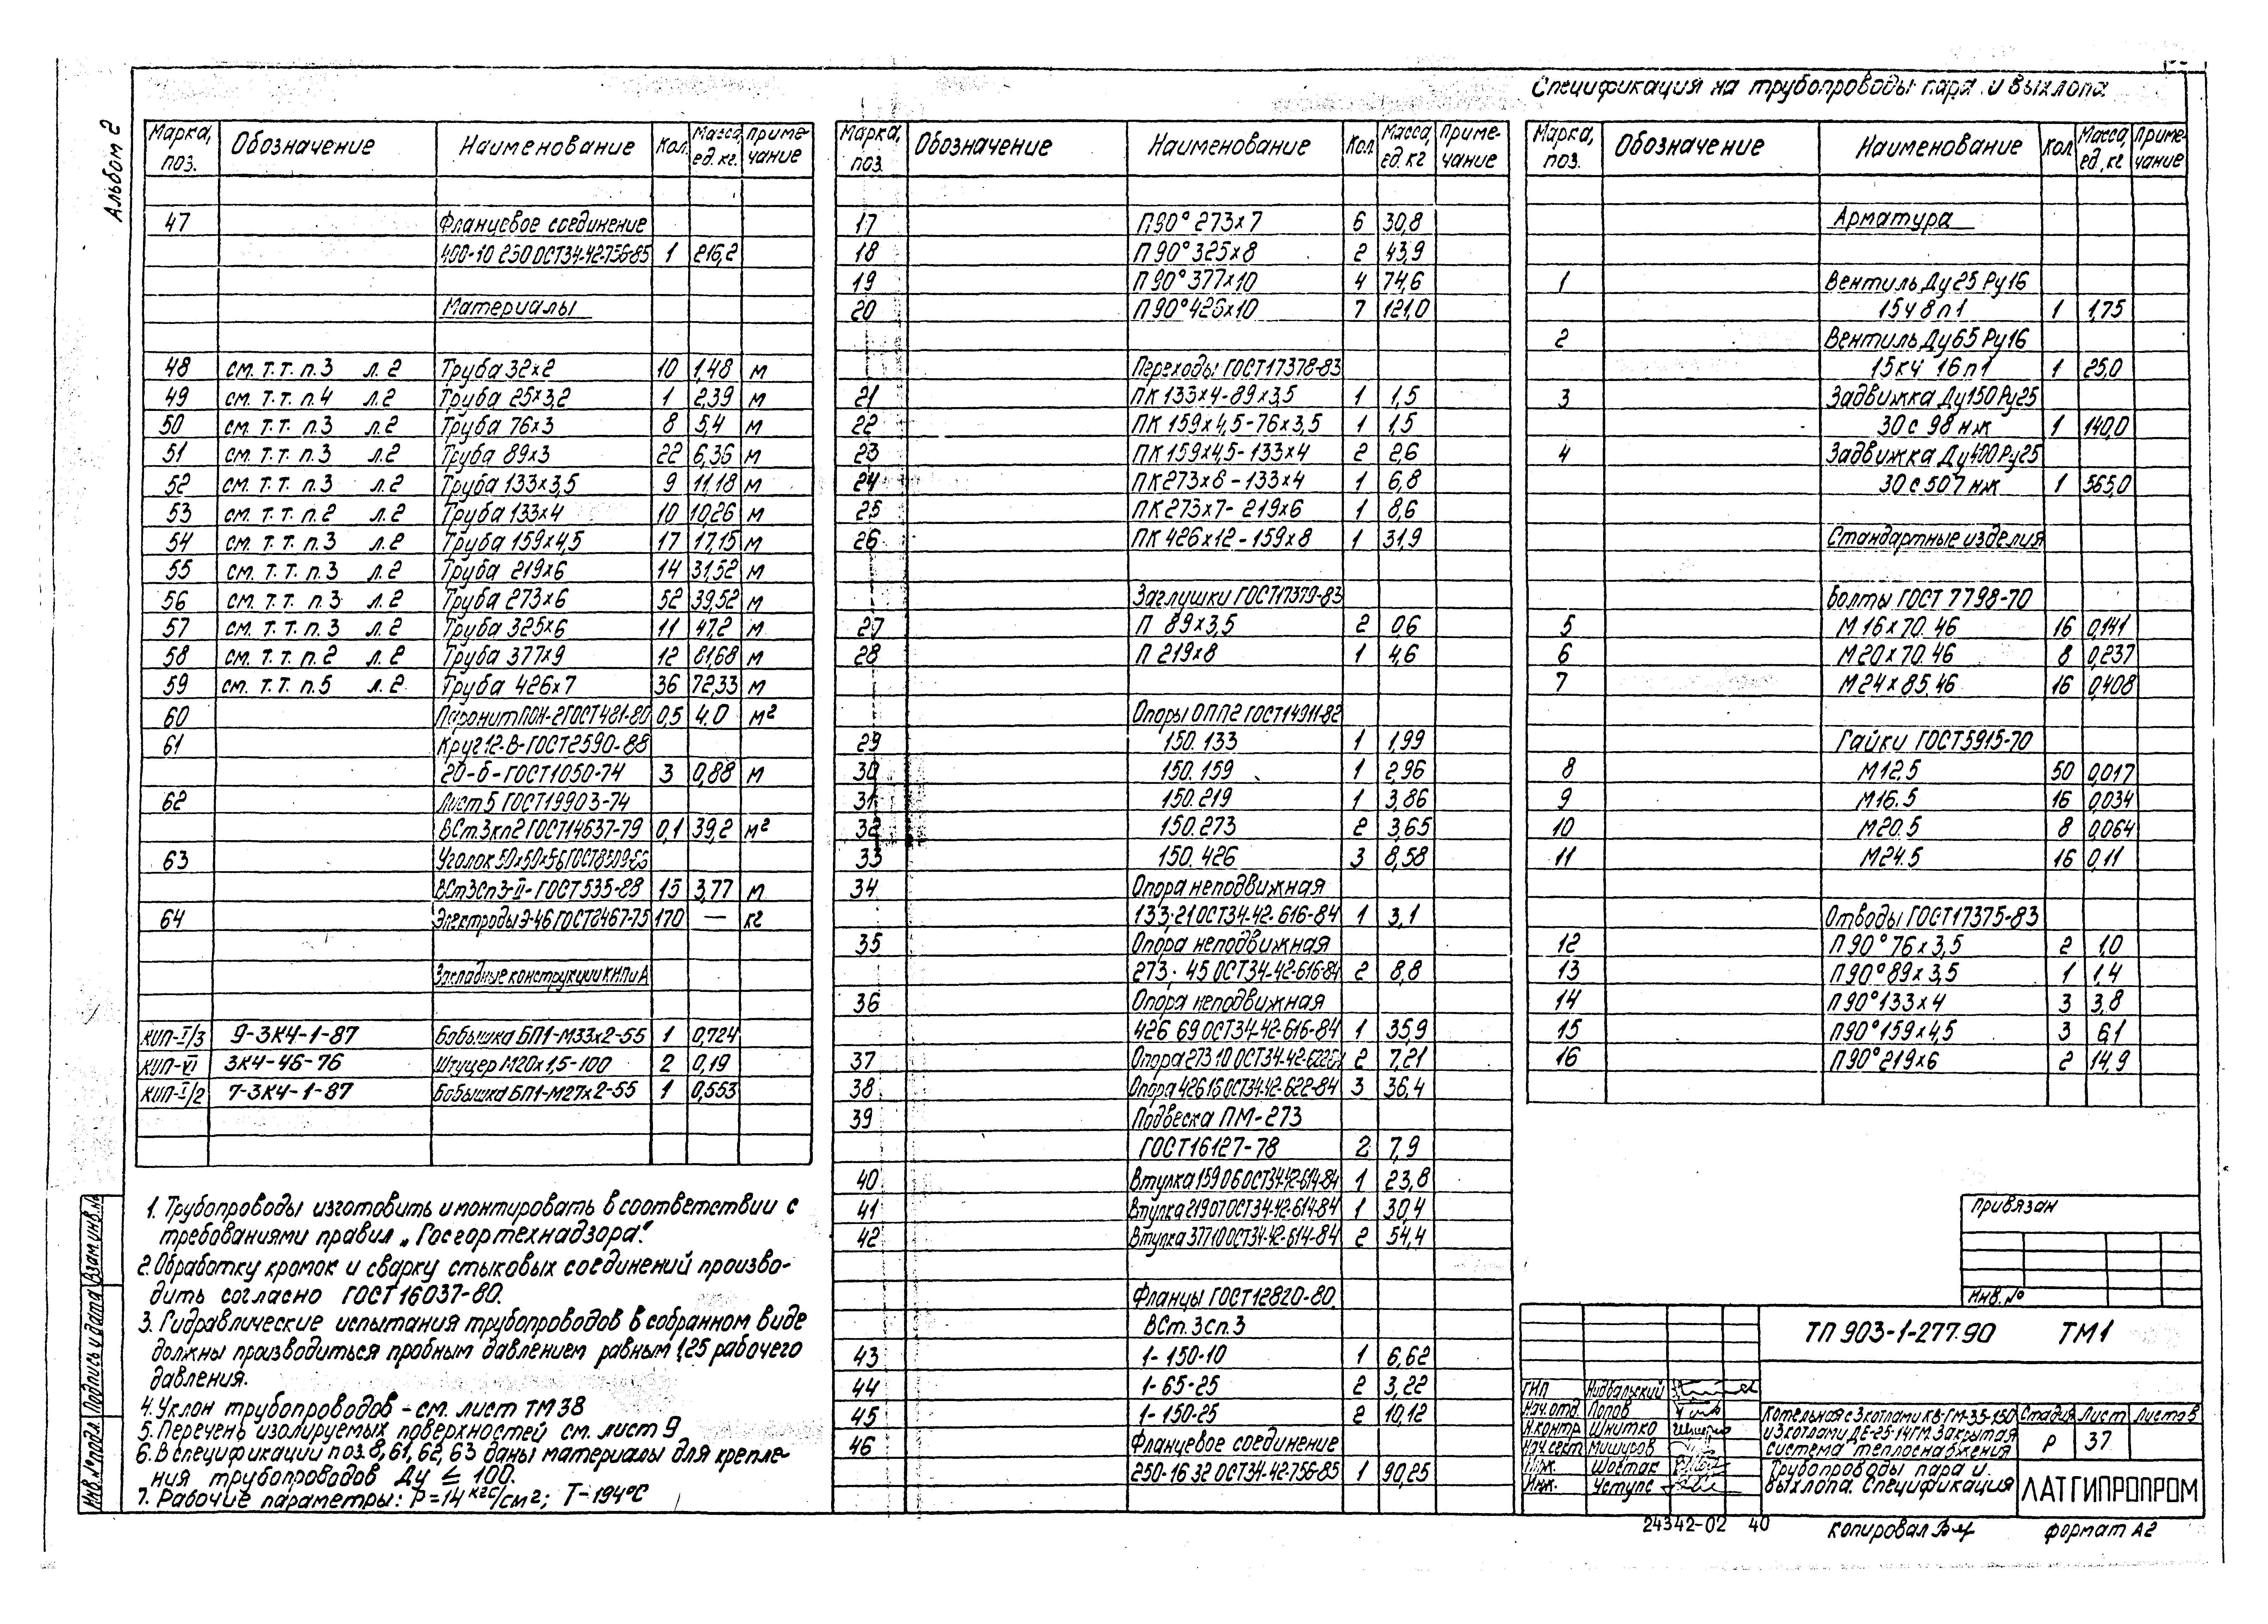 Спецификация на трубопроводы пара и выхлопа
Альбом 2
Марка, поз. Обозначение Наименование Кол Масса ед. кг. Приме-чание
47 Фланцевое соединение
400-10 250 ОСТ34-42-756-85 1 216,2
Материалы
48 см. т.т. п.3 л.2 Труба 32х2 10 1,48 м
49 см. т.т. п.4 л.2 Труба 25х3,2 1 2,39 м
50 см. т.т. п.3 л.2 Труба 76х3 8 5,4 м
51 см. т.т. п.3 л.2 Труба 89х3 22 6,36 м
52 см. т.т. п.3 л.2 Труба 133х3,5 9 11,18 м
53 см. т.т. п.2 л.2 Труба 133х4 10 10,26 м
54 см. т.т. п.3 л.2 Труба 159х4,5 17 17,15 м
55 см. т.т. п.3 л.2 Труба 219х6 14 31,52 м
56 см. т.т. п.3 л.2 Труба 273х6 52 39,52 м
57 см. т.т. п.3 л.2 Труба 325х6 11 47,2 м
58 см. т.т. п.2 л.2 Труба 377х9 12 81,68 м
59 см. т.т. п.5 л.2 Труба 426х7 36 72,33 м
60 Паронит ПОН-2 ГОСТ 481-80 0,5 4,0 м²
61 Круг 12-В-ГОСТ2590-88
20-б-ГОСТ1050-74 3 0,88 м
62 Лист 5 ГОСТ19903-74
ВСт.3кп2 ГОСТ14637-79 0,1 39,2 м²
63 Уголок 50х50х5Б ГОСТ8509-86
ВСт3Сп3-II-ГОСТ535-88 15 3,77 м
64 Электроды Э-46 ГОСТ9467-75 170 — кг
Закладные конструкции КИПиА
КИП-I/3 9-ЗК4-1-87 Бобышка БП1-М33х2-55 1 0,724
КИП-VI ЗК4-46-76 Штуцер М20х1,5-100 2 0,19
КИП-I/2 7-ЗК4-1-87 Бобышка БП1-М27х2-55 1 0,553
1. Трубопроводы изготовить и монтировать в соответствии с
требованиями правил „Госгортехнадзора".
2. Обработку кромок и сварку стыковых соединений произво-
дить согласно ГОСТ 16037-80.
3. Гидравлические испытания трубопроводов в собранном виде
должны производиться пробным давлением равным 1,25 рабочего
давления.
4. Уклон трубопроводов - см. лист ТМ 38
5. Перечень изолируемых поверхностей см. лист 9
6. В спецификации поз. 8, 61, 62, 63 даны материалы для крепле-
ния трубопроводов Ду ≤ 100.
7. Рабочие параметры: Р=14 кгс/см²; Т-194°С
Марка, поз. Обозначение Наименование Кол Масса, ед. кг Приме-чание
17 П90° 273х7 6 30,8
18 П 90° 325х8 2 43,9
19 П 90° 377х10 4 74,6
20 П 90° 426х10 7 121,0
Переходы ГОСТ17378-83
21 ПК 133х4-89х3,5 1 1,5
22 ПК 159х4,5-76х3,5 1 1,5
23 ПК 159х4,5-133х4 2 2,6
24 ПК 273х8-133х4 1 6,8
25 ПК 273х7-219х6 1 8,6
26 ПК 426х12-159х8 1 31,9
Заглушки ГОСТ17379-83
27 П 89х3,5 2 0,6
28 П 219х8 1 4,6
Опоры ОПП2 ГОСТ14911-82
29 150.133 1 1,99
30 150.159 1 2,96
31 150.219 1 3,86
32 150.273 2 3,65
33 150.426 3 8,58
34 Опора неподвижная
133.21 ОСТ34-42-616-84 1 3,1
35 Опора неподвижная
273.45 ОСТ34-42-616-84 2 8,8
36 Опора неподвижная
426 69 ОСТ34-42-616-84 1 35,9
37 Опора 273 10 ОСТ34-42-622-84 2 7,21
38 Опора 426 16 ОСТ34-42-622-84 3 36,4
39 Подвеска ПМ-273
ГОСТ16127-78 2 7,9
40 Втулка 159 06 ОСТ34-42-614-84 1 23,8
41 Втулка 219 07 ОСТ34-42-614-84 1 30,4
42 Втулка 377 10 ОСТ34-42-614-84 2 54,4
Фланцы ГОСТ12820-80
ВСт.3сп.3
43 1-150-10 1 6,62
44 1-65-25 2 3,22
45 1-150-25 2 10,12
46 Фланцевое соединение
250-16 32 ОСТ34-42-756-85 1 90,25
Марка, поз. Обозначение Наименование Кол Масса, ед, кг Приме-чание
Арматура
1 Вентиль Ду25 Ру16
15ч 8п1 1 1,75
2 Вентиль Ду65 Ру16
15кч 16п1 1 25,0
3 Задвижка Ду150 Ру25
30с 98 нж 1 140,0
4 Задвижка Ду400 Ру25
30 с 507 нж 1 565,0
Стандартные изделия
Болты ГОСТ 7798-70
5 М16х70.46 16 0,141
6 М20х70.46 8 0,237
7 М24х85.46 16 0,408
Гайки ГОСТ5915-70
8 М12.5 50 0,017
9 М16.5 16 0,034
10 М20.5 8 0,064
11 М24.5 16 0,11
Отводы ГОСТ17375-83
12 П 90° 76х3,5 2 1,0
13 П 90° 89х3,5 1 1,4
14 П 90° 133х4 3 3,8
15 П90° 159х4,5 3 6,1
16 П 90° 219х6 2 14,9
Привязан
Инв. №
ТП 903-1-277.90 ТМ1
ГИП Нидбальский
Нач. отд. Попов
Н.контр Шнитко
Нач. сект. Мишуров
Инж. Шостак
Инж. Уступс
Котельная с 3 котлами КВ-ГМ-35-150
и 3 котлами ДЕ-25-14ГМ. Закрытая
система теплоснабжения
Стадия Лист Листов
Р 37
Трубопроводы пара и
выхлопа. Спецификация
ЛАТГИПРОПРОМ
24342-02 40
Копировал
формат А2
Взам. инв. №
Подпись и дата
Инв. № подл.